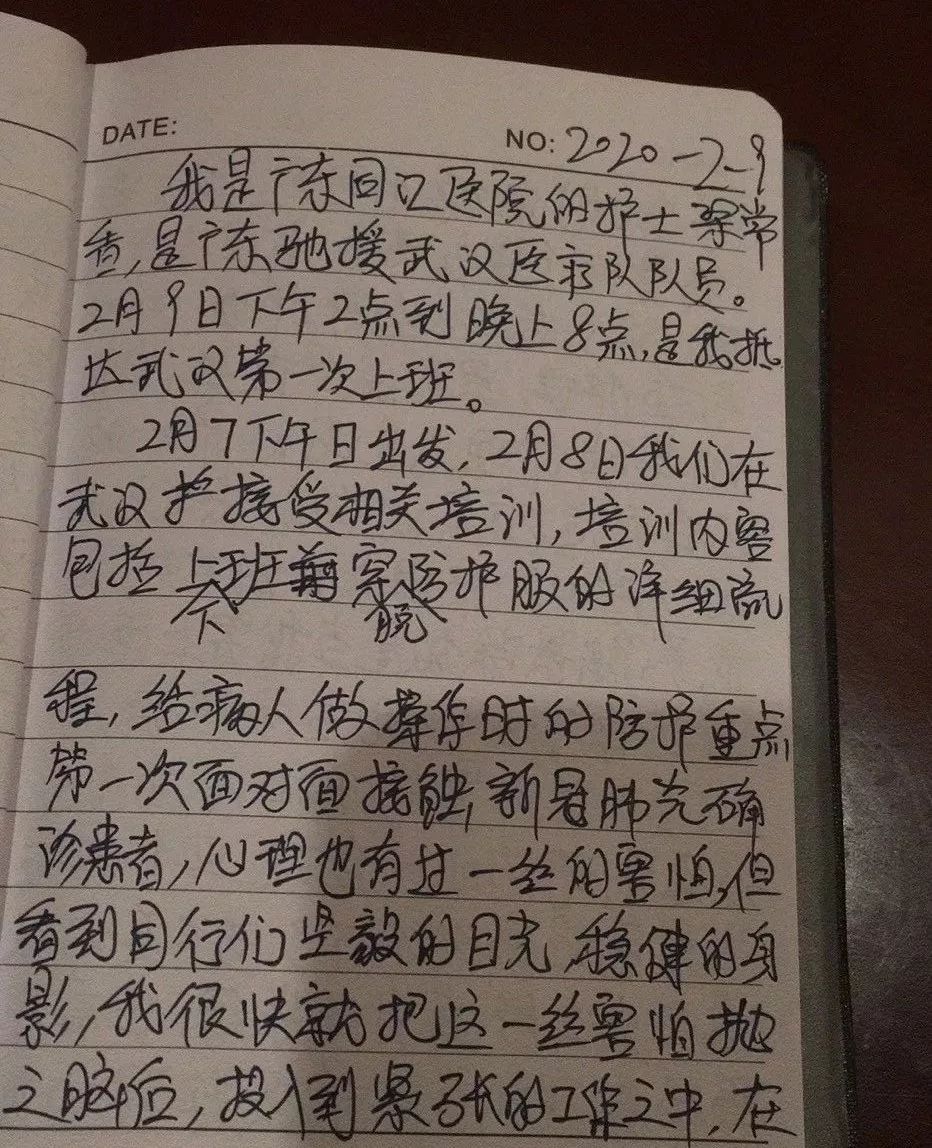 DATE:
NO: 2020-2-9
我是广东同江医院的护士梁常
香,是广东驰援武汉医疗队队员。
2月9日下午2点到晚上8点,是我抵
达武汉第一次上班。
2月7下午日出发,2月8日我们在
武汉接受相关培训,培训内容
包括上班穿防护服的详细流
下 脱
程,给病人做操作时的防护重点
第一次面对面接触,新冠肺炎确
诊患者,心理也有过一丝的害怕,但
看到同行们坚毅的目光,稳健的身
影,我很快就把这一丝害怕抛
之脑后,投入到紧张的工作之中,在